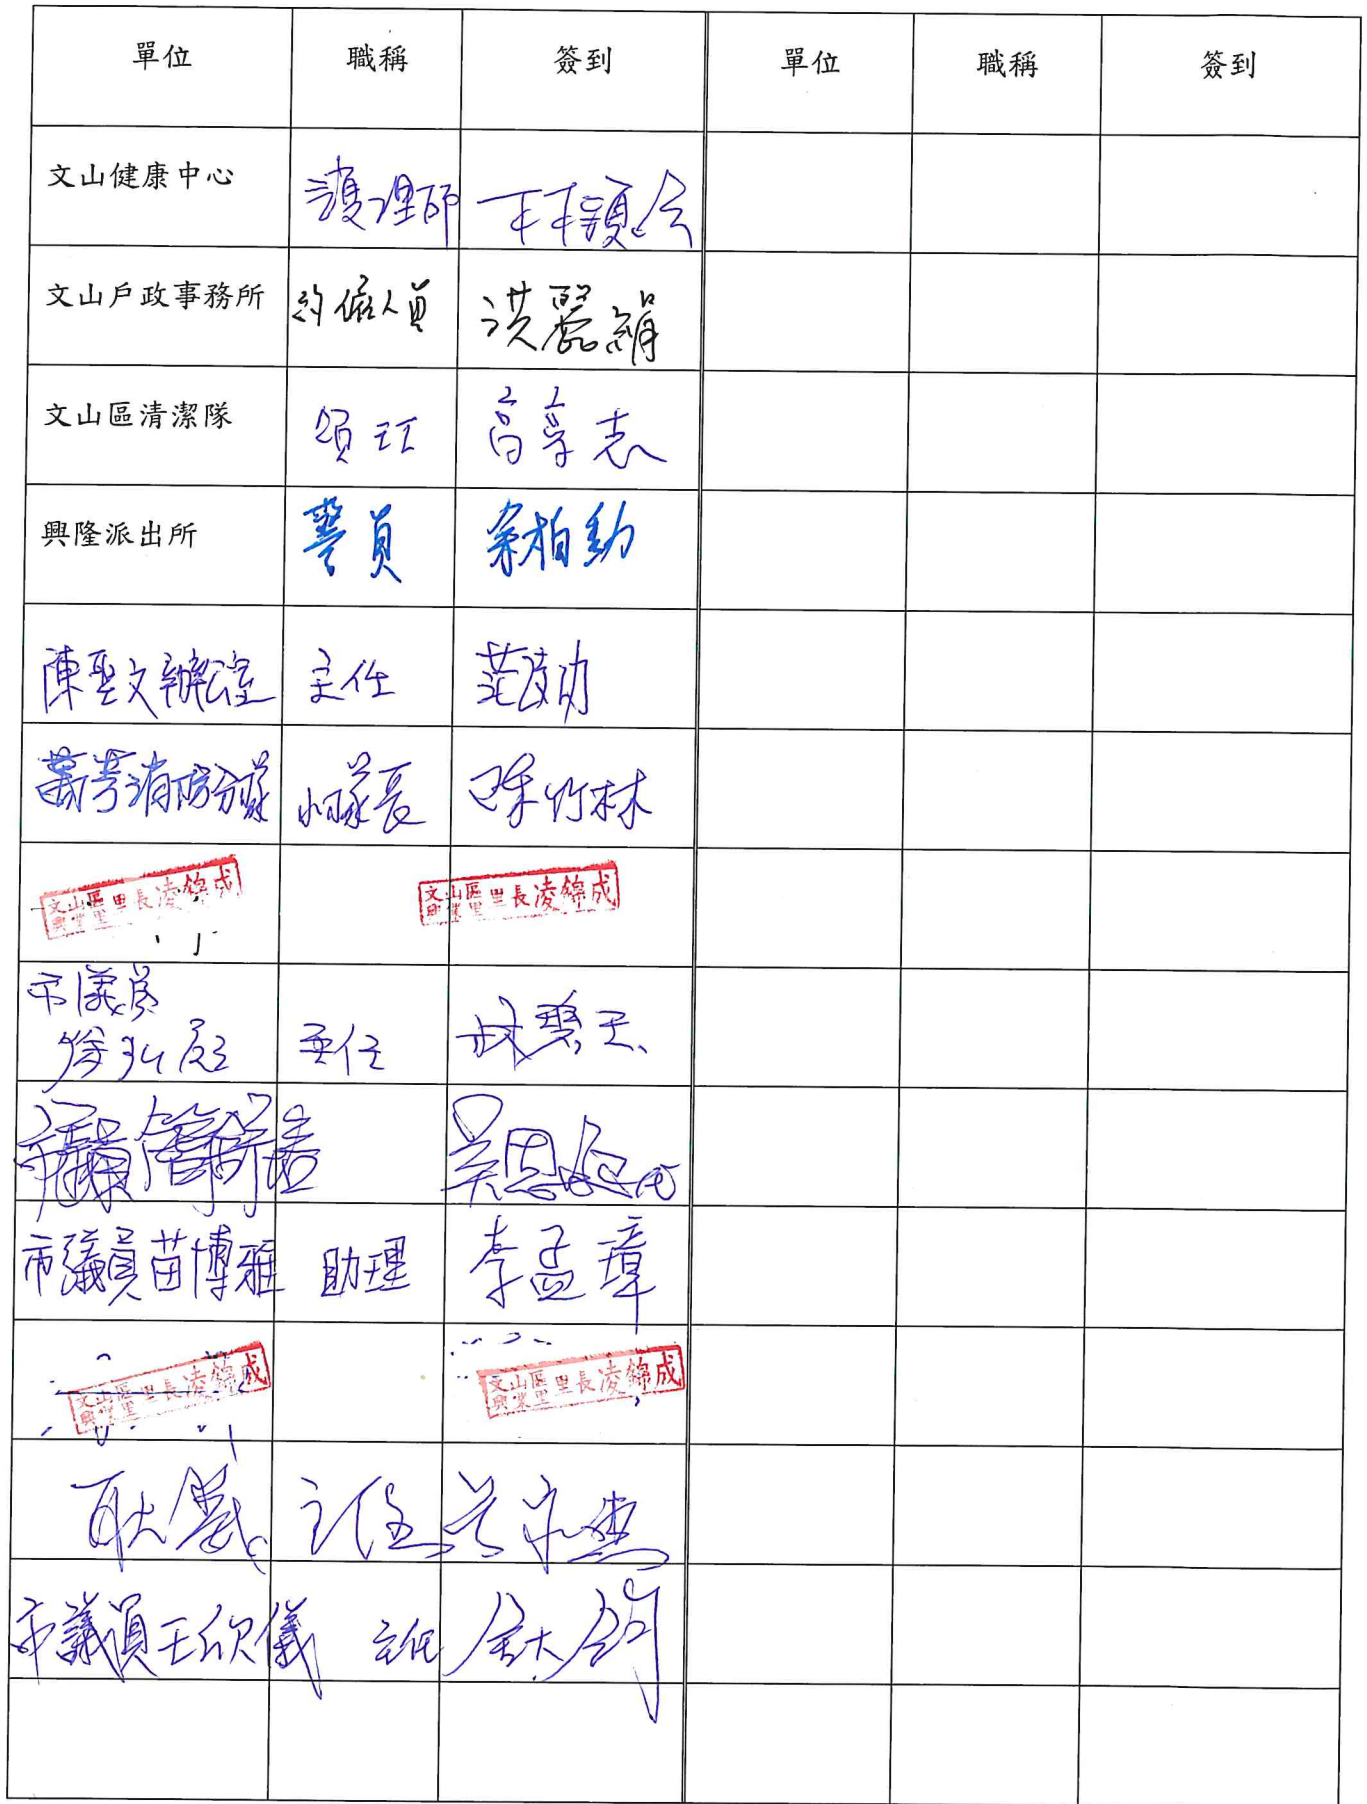 單位 職稱 簽到 單位 職稱 簽到
文山健康中心 護理師
文山戶政事務所 約僱人員 洪麗絹
文山區清潔隊 領班 高孝志
興隆派出所 警員 余柏勳
陳聖文辦公室 主任
萬芳消防分隊 小隊長 陳竹林
文山區興業里里長凌錦成 文山區興業里里長凌錦成
市議員
徐弘庭 主任
市議員
市議員苗博雅 助理 李孟璋
文山區興業里里長凌錦成 文山區興業里里長凌錦成
耿葳 主任
市議員王欣儀 主任